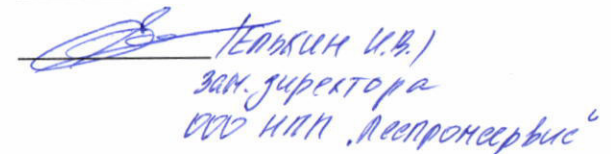 (Елькин И.В.)
зам. директора
ООО НПП „Леспромсервис“